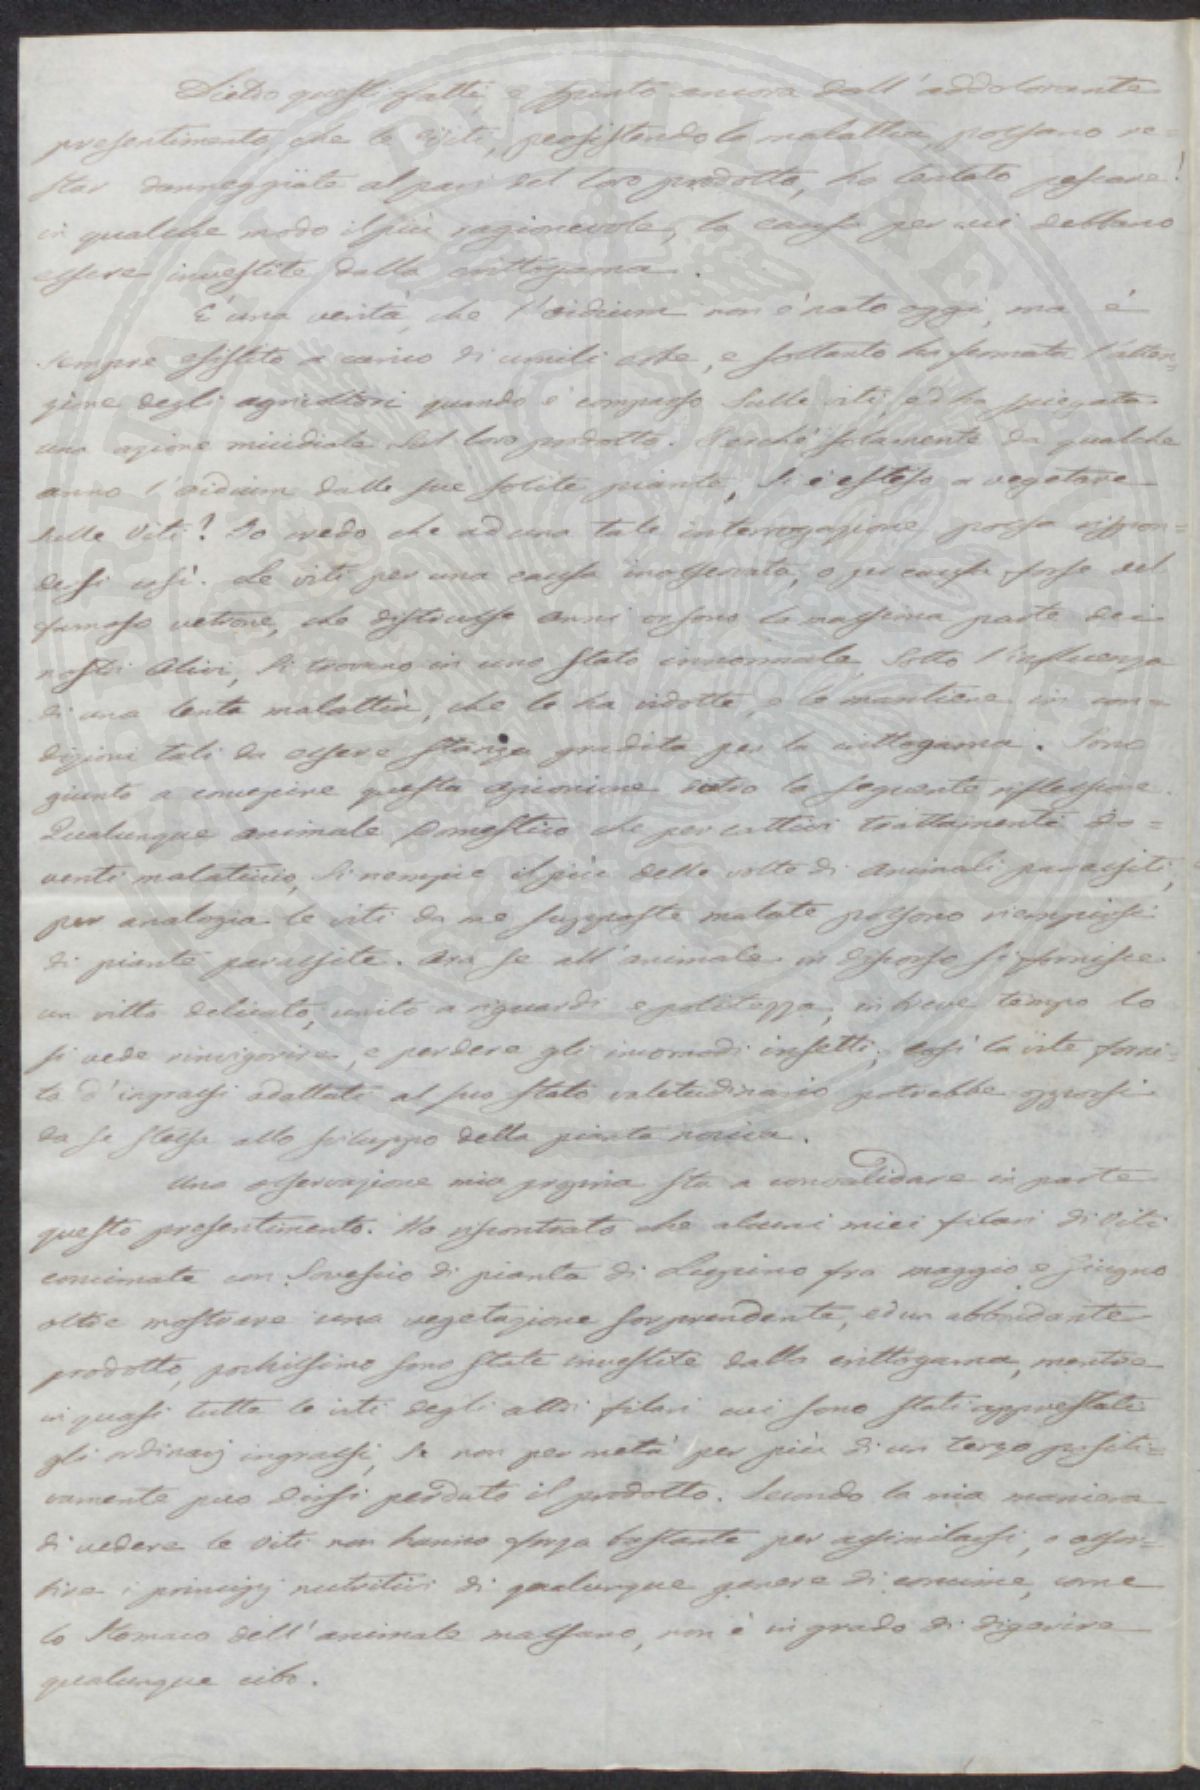 Dietro questi fatti, e spinto ancora dall'addolorante
presentimento, che le Viti, persistendo la malattia, possano re=
star danneggiate al pari del loro prodotto, ho tentato pescare
in qualche modo il più ragionevole, la causa per cui debbano
essere investite dalla crittogama.
È una verità, che l'oidium non è nato oggi, ma è
sempre esistito a carico di umili erbe, e soltanto ha fermata l'atten=
zione degli agricoltori quando è comparso sulle viti, ed ha spiegata
una azione micidiale sul loro prodotto. Perchè solamente da qualche
anno l'oidium dalle sue solite piante, si è esteso a vegetare
sulle Viti? Io credo che ad una tale interrogazione possa rispon=
desi così. Le viti per una causa inosservata, o per causa forse del
famoso vetrone, che distrusse anni or sono la massima parte dei
nostri Olivi, si trovano in uno stato innormale, sotto l'influenza
di una lenta malattia, che le ha ridotte, e le mantiene in con=
dizioni tali da essere stanza gradita per la crittogama. Sono
giunto a concepire questa opinione dietro la seguente riflessione.
Qualunque animale domestico che per cattivi trattamenti di=
venti malaticcio, si riempie il più delle volte di animali parassiti,
per analogia le viti da me supposte malate possono riempirsi
di piante parassite. Ora se all'animale in discorso si fornisce
un vitto delicato, unito a riguardi e politezza, in breve tempo lo
si vede rinvigorire, e perdere gli incomodi insetti; così la vite forni=
ta d'ingrassi adattati al suo stato valetudinario potrebbe opporsi
da se stessa allo sviluppo della pianta nociva.
Una osservazione mia propria sta a convalidare in parte
questo presentimento. Ho riscontrato che alcuni miei filari di Viti
concimate con Sovescio di pianta di Luppino fra maggio e Giugno
oltre mostrare una vegetazione sorprendente, ed un abbondante
prodotto, pochissimo sono state investite dalla crittogama, mentre
in quasi tutte le viti degli altri filari cui sono stati apprestati
gli ordinarj ingrassi, se non per metà per più di un terzo positi=
vamente può dirsi perduto il prodotto. Secondo la mia maniera
di vedere le Viti non hanno forza bastante per assimilarsi, o assor=
bire i principj nutritivi di qualunque genere di concime, come
lo stomaco dell'animale malsano, non è in grado di digerire
qualunque cibo.